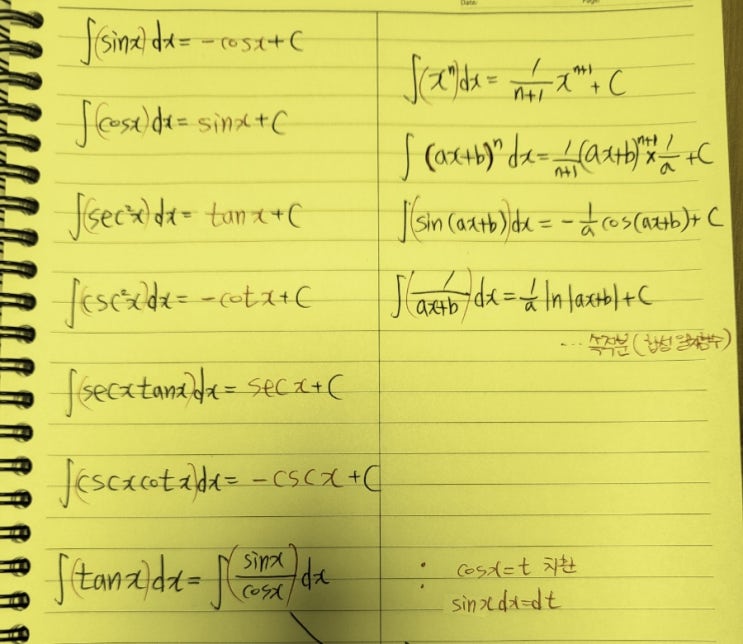 Date:
Page:
∫(sinx)dx = -cosx+C
∫(cosx)dx = sinx+C
∫(sec²x)dx = tanx+C
∫(csc²x)dx = -cotx+C
∫(secxtanx)dx = secx+C
∫(cscxcotx)dx = -cscx+C
∫(tanx)dx = ∫(sinx/cosx)dx
∫(xⁿ)dx = 1/(n+1) xⁿ⁺¹ + C
∫(ax+b)ⁿ dx = 1/(n+1) (ax+b)ⁿ⁺¹ × 1/a + C
∫(sin(ax+b))dx = -1/a cos(ax+b)+C
∫(1/(ax+b))dx = 1/a ln|ax+b|+C
... 속적분(합성
: cosx=t 치환
sinxdx=dt